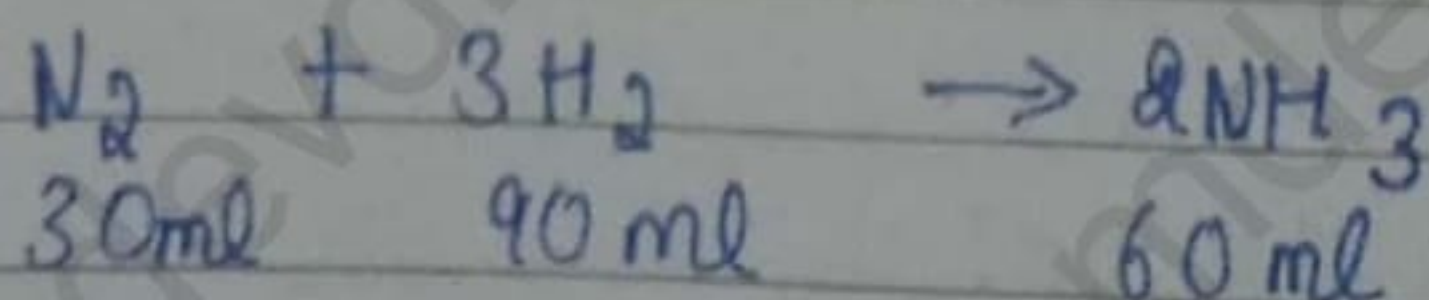 N2 + 3H2 → 2NH3
30ml 90 ml 60 ml